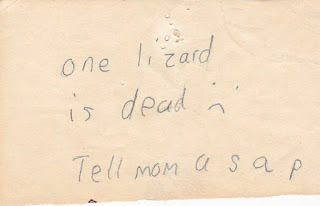 one lizard
is dead :(
Tell mom a s a p